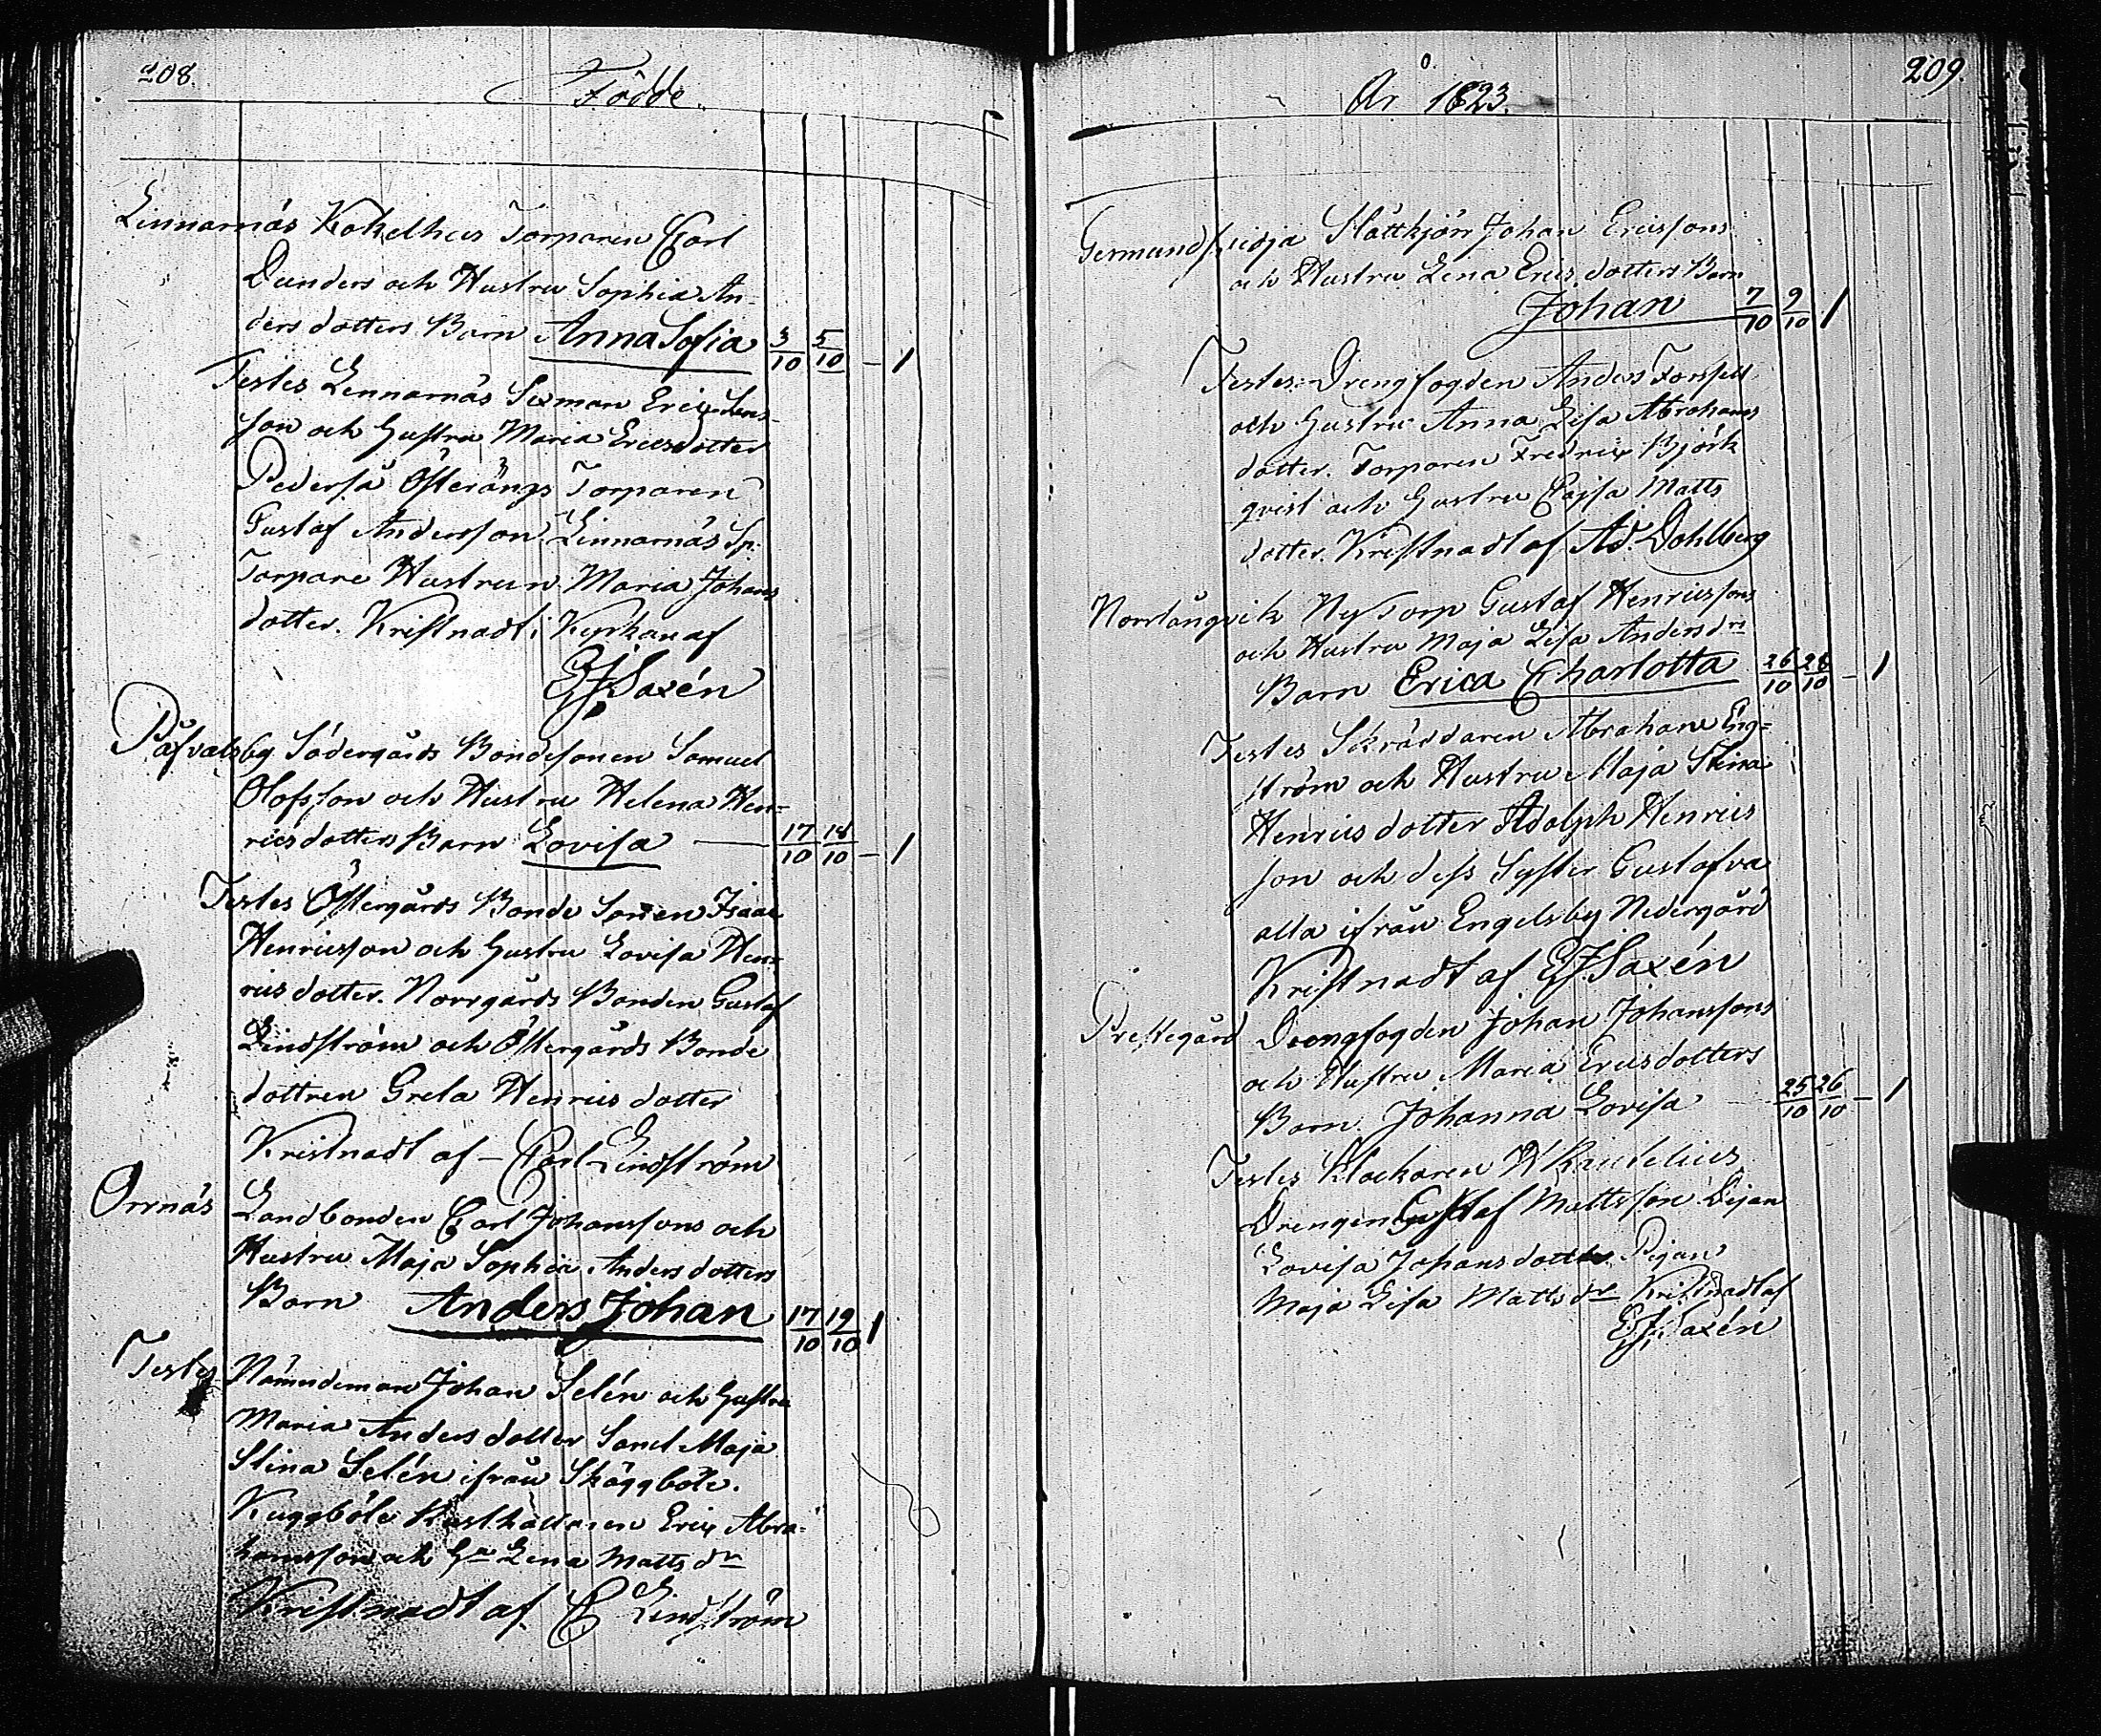 208.
Födde.
Linnarnäs Kokelhus Torparen Carl
Dunders och Hustru Sophia An-
ders dotters Barn Anna Sofia 3/10 5/10 - 1
Testes Lennarnäs Sexman Eric
son och Hustru Maria Ericsdotter
Pederså Österängs Torparen
Gustaf Andersson. Linnarnäs Sp.
Torpare Hustrun Maria Johans
dotter. Kristnadt i Kyrkan af
EJSaxén
Påfvalsby Södergårds Bondesonen Samuel
Olofsson och Hustru Helena Hen-
rics dotters Barn Lovisa 17/10 18/10 - 1
Testes Östergårds Bonde Sonen Isaac
Henricsson och Hustru Lovisa Hen-
rics dotter. Norrgårds Bonden Gustaf
Lindström och Östergårds Bonde
dottren Greta Henrics dotter
Kristnadt af - Carl Lindström
Orrnäs Landbonden Carl Johanssons och
Hustru Maja Sophia Anders dotters
Barn Anders Johan 17/10 19/10 1
Testes Nämndeman Johan Selén och Hustru
Maria Anders dotter Samt Maja
Stina Selén ifrån Skäggböle.
Kuggböle Rusthållaren Eric Abra-
hamsson och Hu Lena Matts dr
Kristnadt af C Lindström
År 1823.
209.
Germundsvidja Slättkjörr Johan Ericssons
och Hustru Lena Erics dotters Barn
Johan 7/10 9/10 1
Testes: Drengfogden Anders Forssell
och Hustru Anna Lisa Abrahams
dotter. Torparen Fredric Björk
qvist och Hustru Cajsa Matts
dotter. Kristnadt af Ad. Dahlberg
Norrlångvik Ny Torp Gustaf Henricssons
och Hustru Maja Lisa Anders drs
Barn Erica Charlotta 26/10 28/10 - 1
Testes Skräddaren Abraham Eng-
ström och Hustru Maja Stina
Henrics dotter Adolph Henrics
son och dess Syster Gustafva
alla ifrån Engelsby Nedergård
Kristnadt af EJSaxén
Prestegård Drengfogden Johan Johanssons
och Hustru Maria Ericsdotters
Barn Johanna Lovisa 25/10 26/10 - 1
Testes Klockaren
Drengen Gustaf Mattsson Dejan
Lovisa Johans dotter Pigan
Maja Lisa Matts dr Kristnadt af
EJSaxén